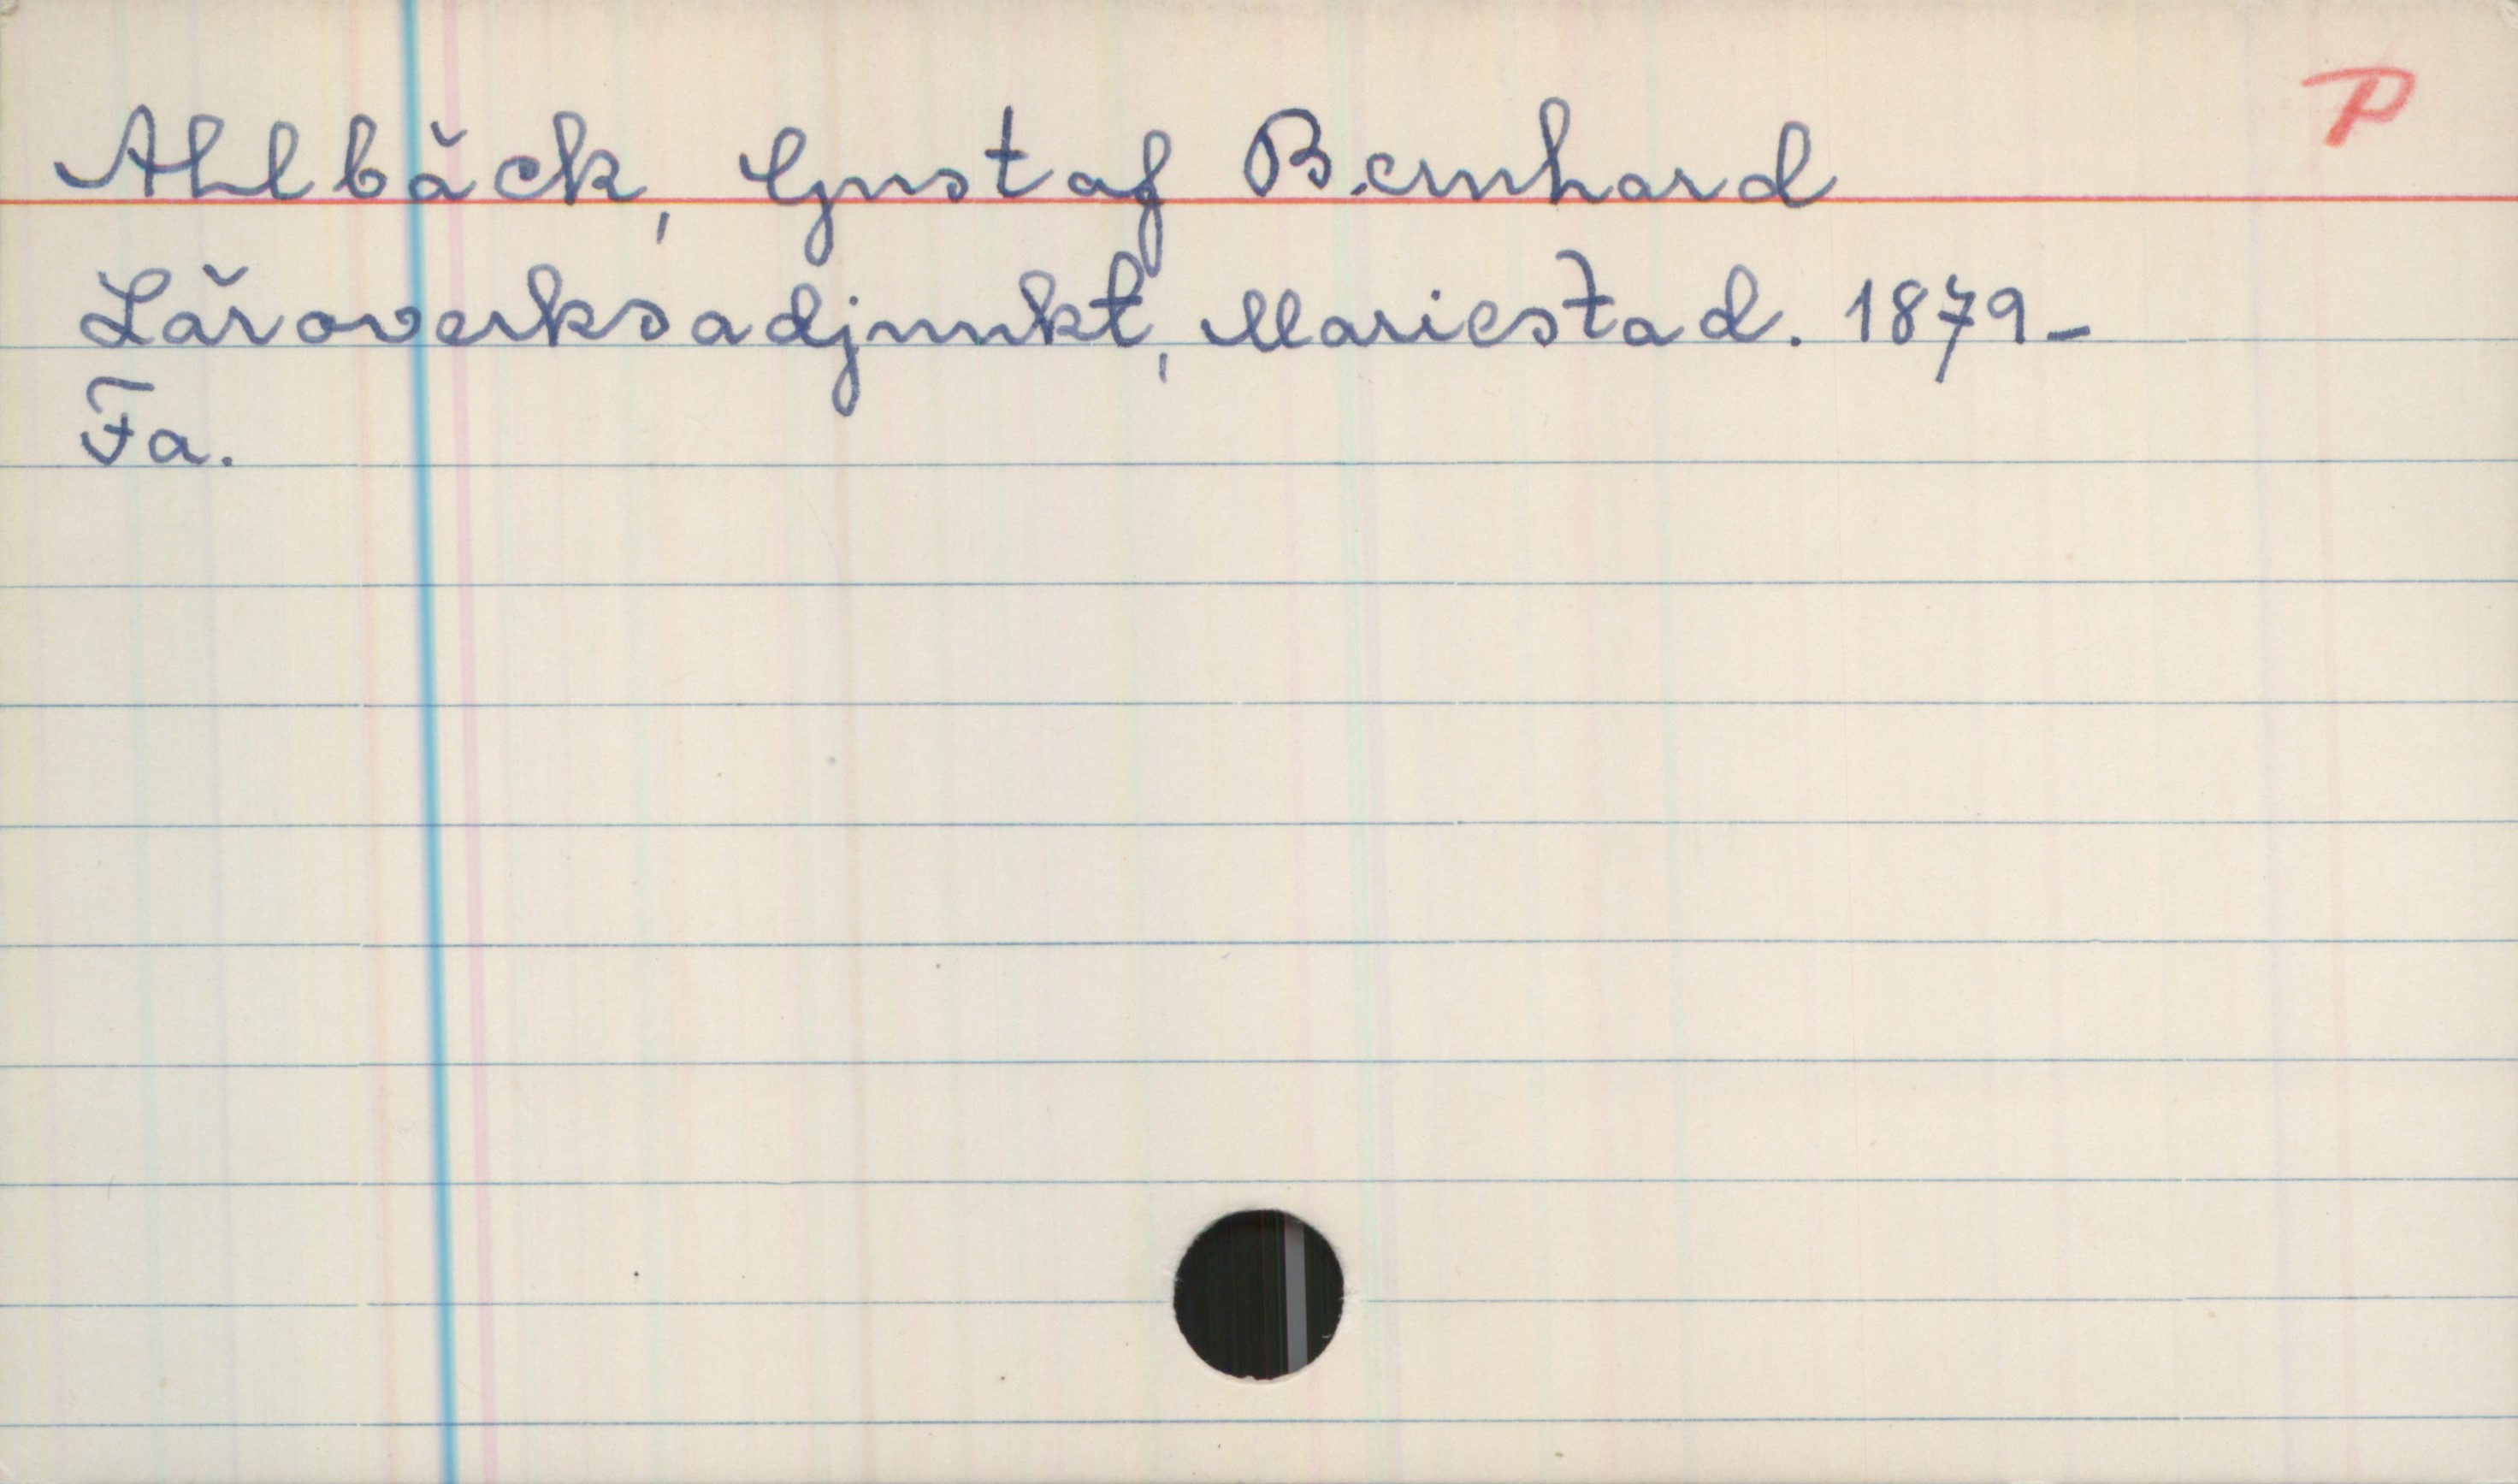 P
Ahlbäck, Gustaf Bernhard
Läroverksadjunkt, Mariestad. 1879-
Fa.